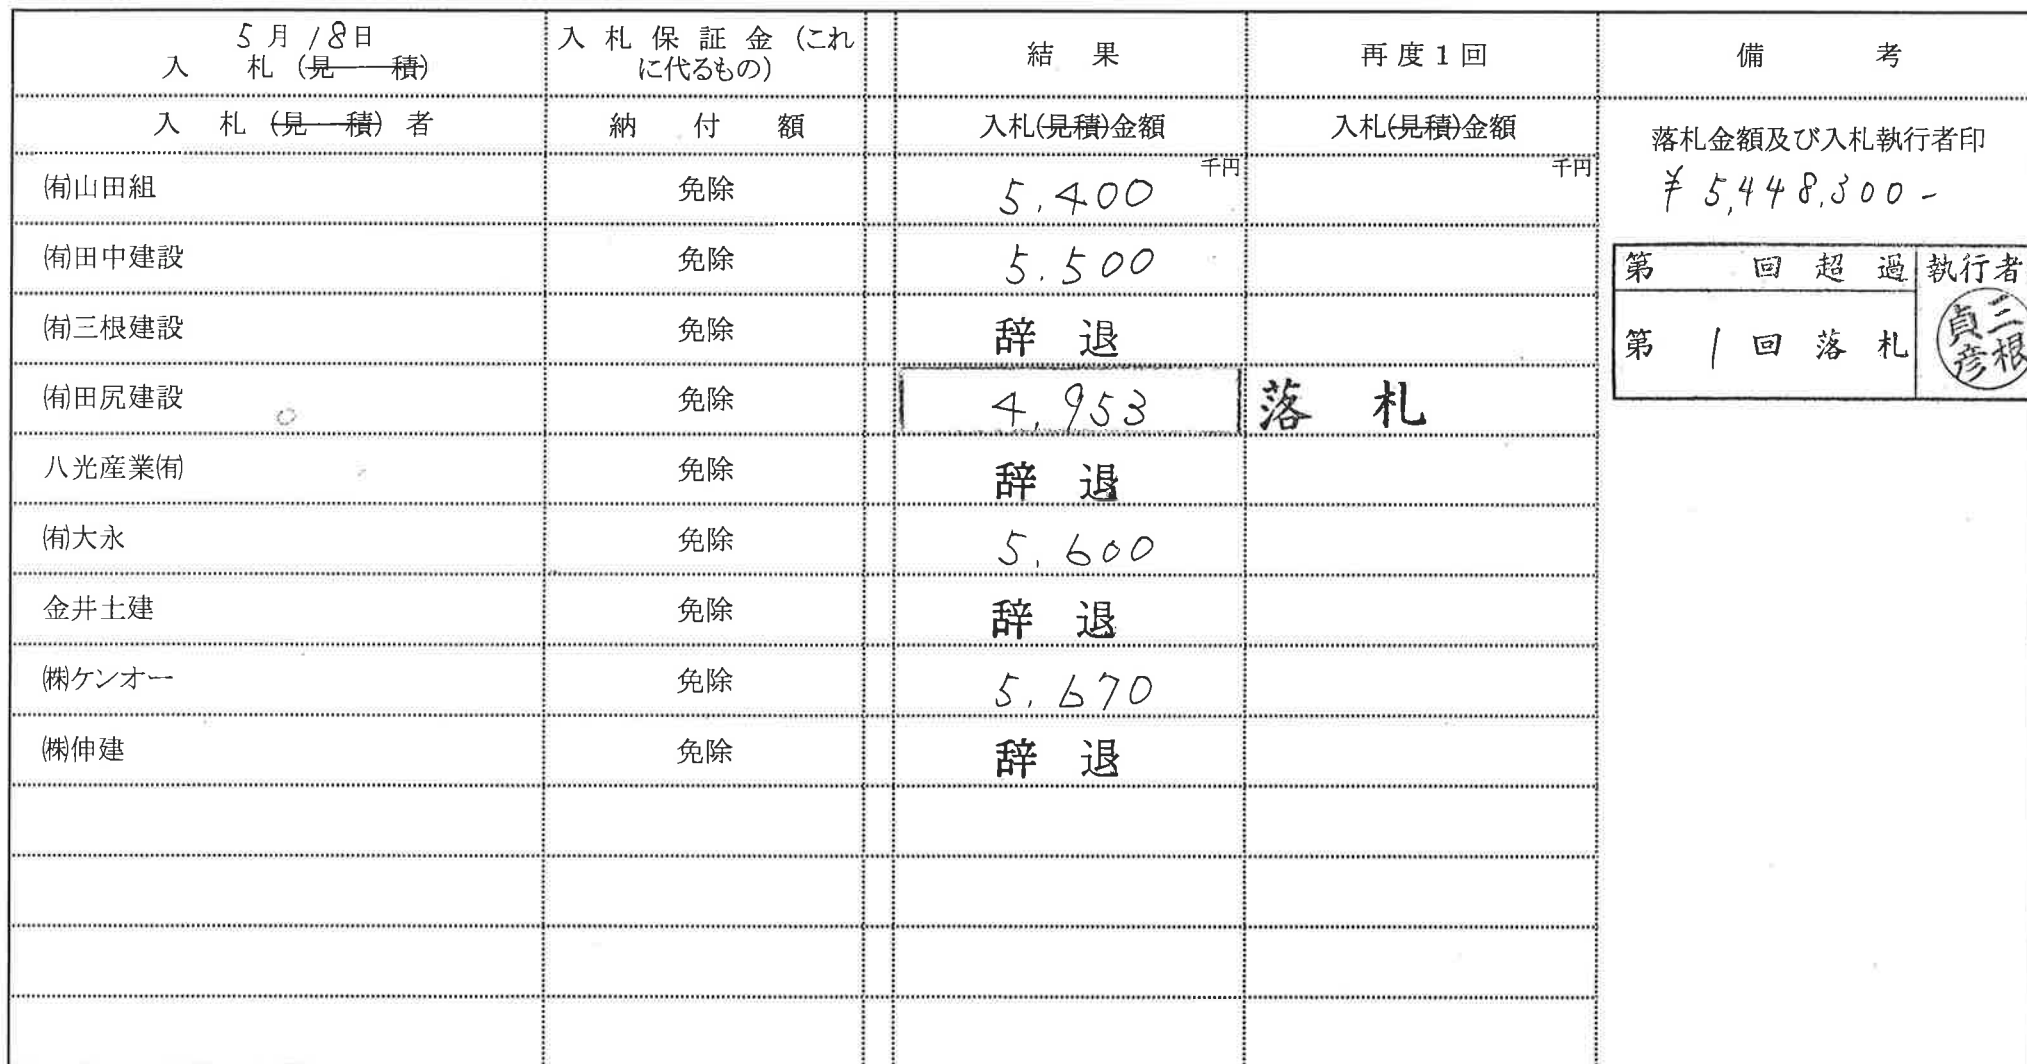 5月18日 入札保証金(これ 結果 再度1回 備考
入札(見積) に代るもの)
入札(見積)者 納付額 入札(見積)金額 入札(見積)金額 落札金額及び入札執行者印
千円 千円
㈲山田組 免除 5,400 ¥5,448,300-
㈲田中建設 免除 5,500 第 回超過 執行者
㈲三根建設 免除 辞退 第1回落札 三根貞彦
㈲田尻建設 免除 4,953 落札
八光産業㈲ 免除 辞退
㈲大永 免除 5,600
金井土建 免除 辞退
㈱ケンオー 免除 5,670
㈱伸建 免除 辞退